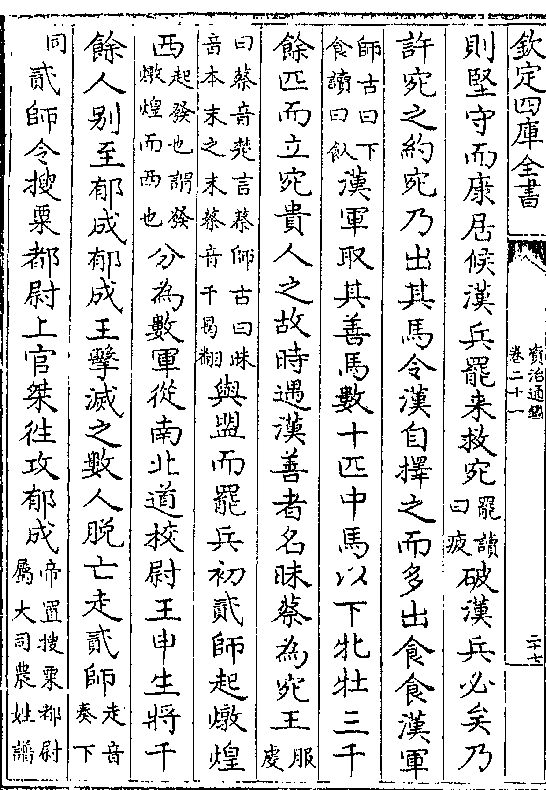 欽定四庫全書
資治通鑑
卷二十一
二十七
則堅守而康居候漢兵罷来救宛罷讀曰疲破漢兵必矣乃
許宛之約宛乃出其馬令漢自擇之而多出食食漢軍
師古曰下食讀曰飤漢軍取其善馬數十匹中馬以下牝牡三千
餘匹而立宛貴人之故時遇漢善者名昧蔡為宛王服虔
曰蔡音楚言蔡師古曰昧音本末之末蔡音千曷翻與盟而罷兵初貳師起燉煌
西起發也謂發燉煌而西也分為數軍從南北道校尉王申生將千
餘人别至郁成郁成王擊滅之數人脱亡走貳師走音奏下
同貳師令搜粟都尉上官桀往攻郁成帝置搜粟都尉屬大司農姓譜